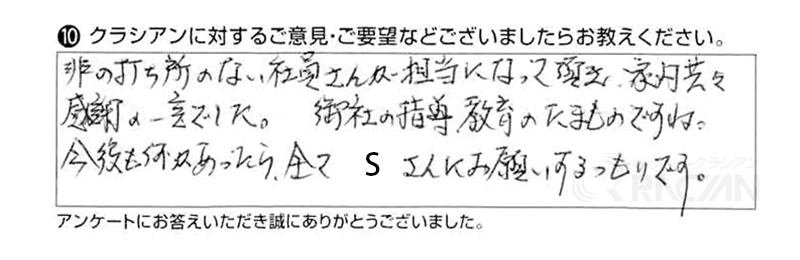 ⑩ クラシアンに対するご意見・ご要望などございましたらお教えください。
非の打ち所のない社員さんが担当になって頂き、家内共々
感謝の一言でした。 御社の指導、教育のたまものですね。
今後も何かあったら、全て S さんにお願いするつもりです。
クラシアン
アンケートにお答えいただき誠にありがとうございました。